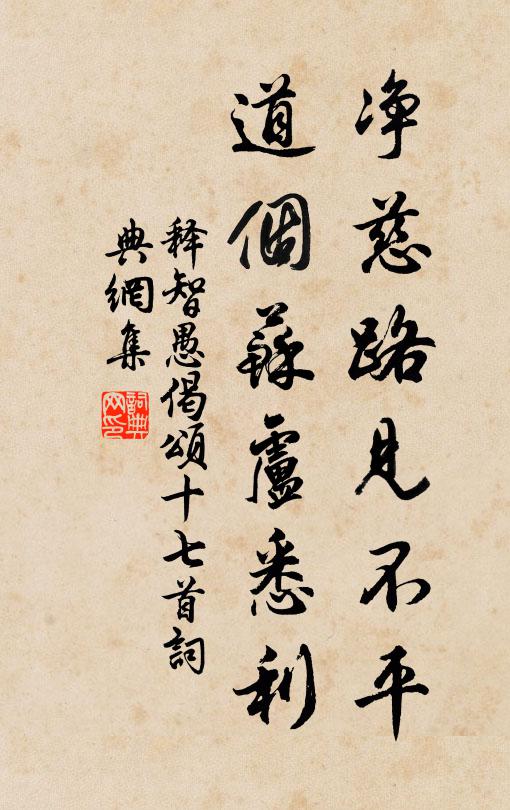 净慈路见不平
道個蘇盧悉利
释智愚偈頌十七首詞
典網集
詞典网印